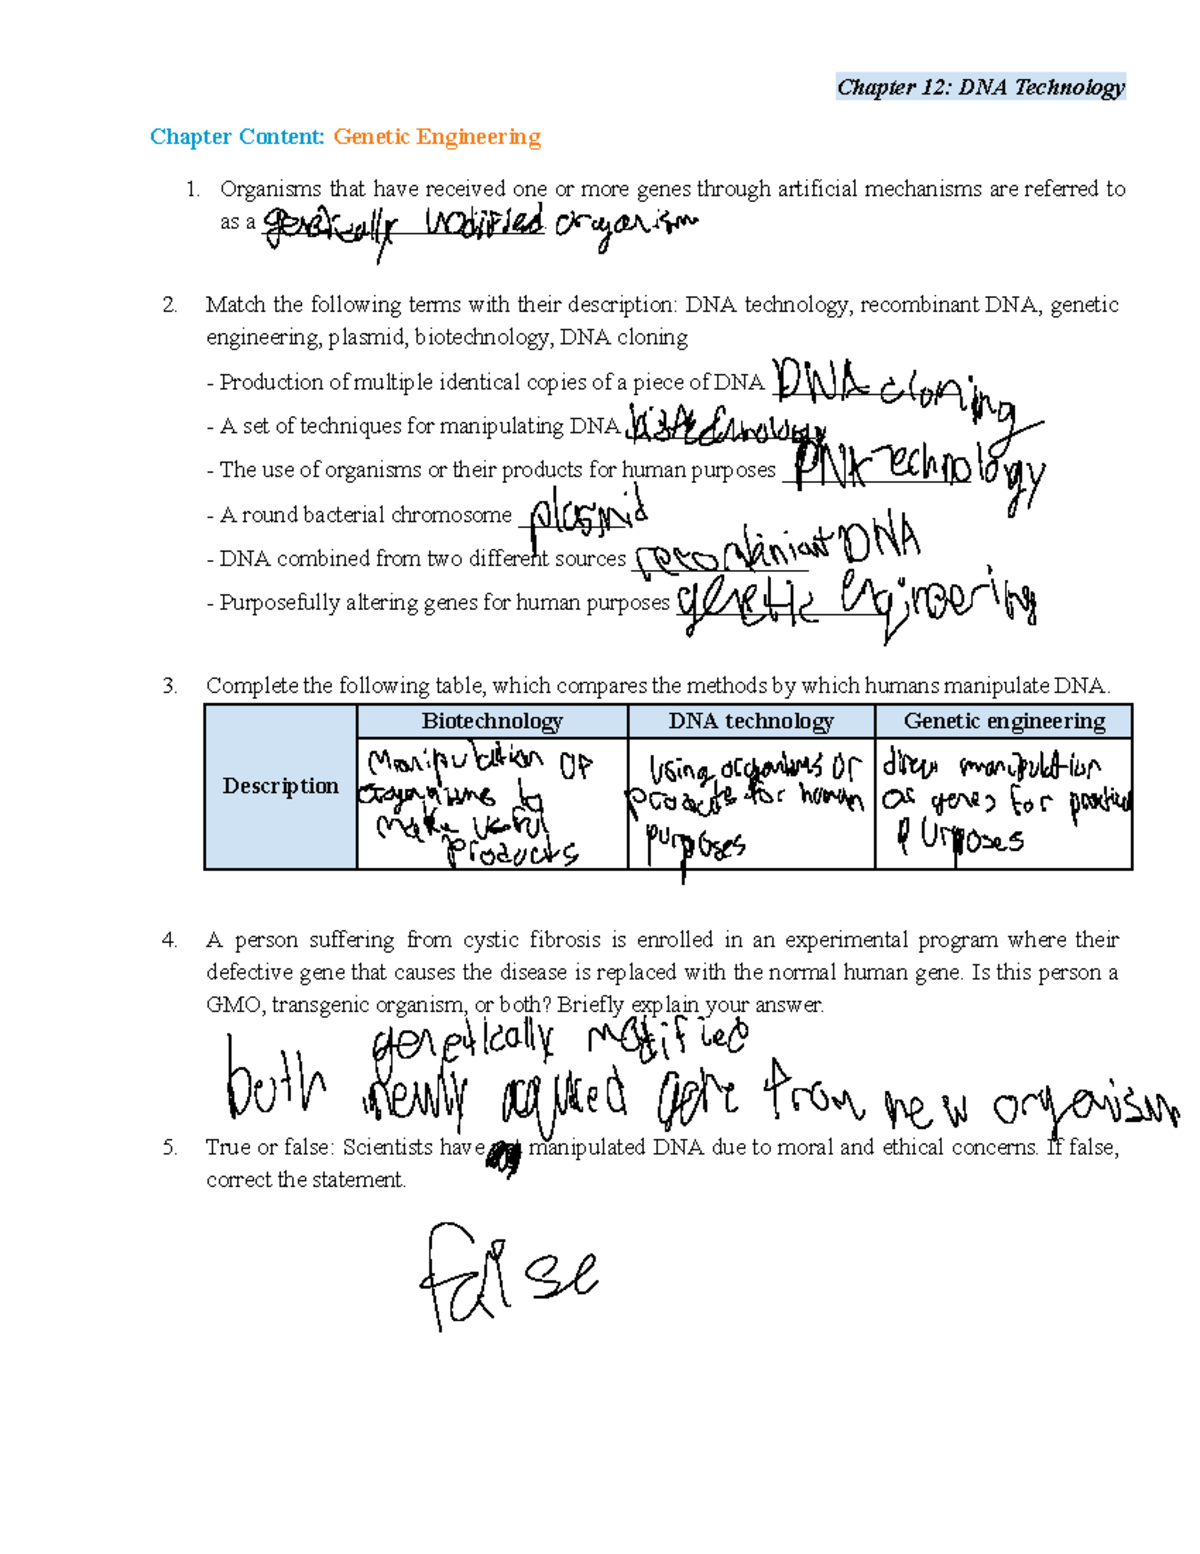 Chapter 12: DNA Technology
Chapter Content: Genetic Engineering
1. Organisms that have received one or more genes through artificial mechanisms are referred to
as a genetically modified organism
2. Match the following terms with their description: DNA technology, recombinant DNA, genetic
engineering, plasmid, biotechnology, DNA cloning
- Production of multiple identical copies of a piece of DNA DNA cloning
- A set of techniques for manipulating DNA biotechnology
- The use of organisms or their products for human purposes DNA technology
- A round bacterial chromosome plasmid
- DNA combined from two different sources recombinant DNA
- Purposefully altering genes for human purposes genetic engineering
3. Complete the following table, which compares the methods by which humans manipulate DNA.
Biotechnology DNA technology Genetic engineering
Description
Manipulation of
organisms to
make useful
products
Using organisms or
products for human
purposes
direct manipulation
of genes for practical
purposes
4. A person suffering from cystic fibrosis is enrolled in an experimental program where their
defective gene that causes the disease is replaced with the normal human gene. Is this person a
GMO, transgenic organism, or both? Briefly explain your answer.
genetically modified
both newly acquired gene from new organism
5. True or false: Scientists have manipulated DNA due to moral and ethical concerns. If false,
correct the statement.
false